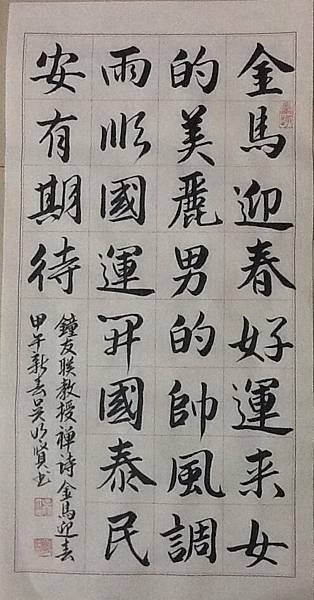 金馬迎春好運来女
的美麗男的帥風調
雨順國運昇國泰民
安有期待
鐘友联教授禅诗金馬迎春
甲午新春吴明賢书